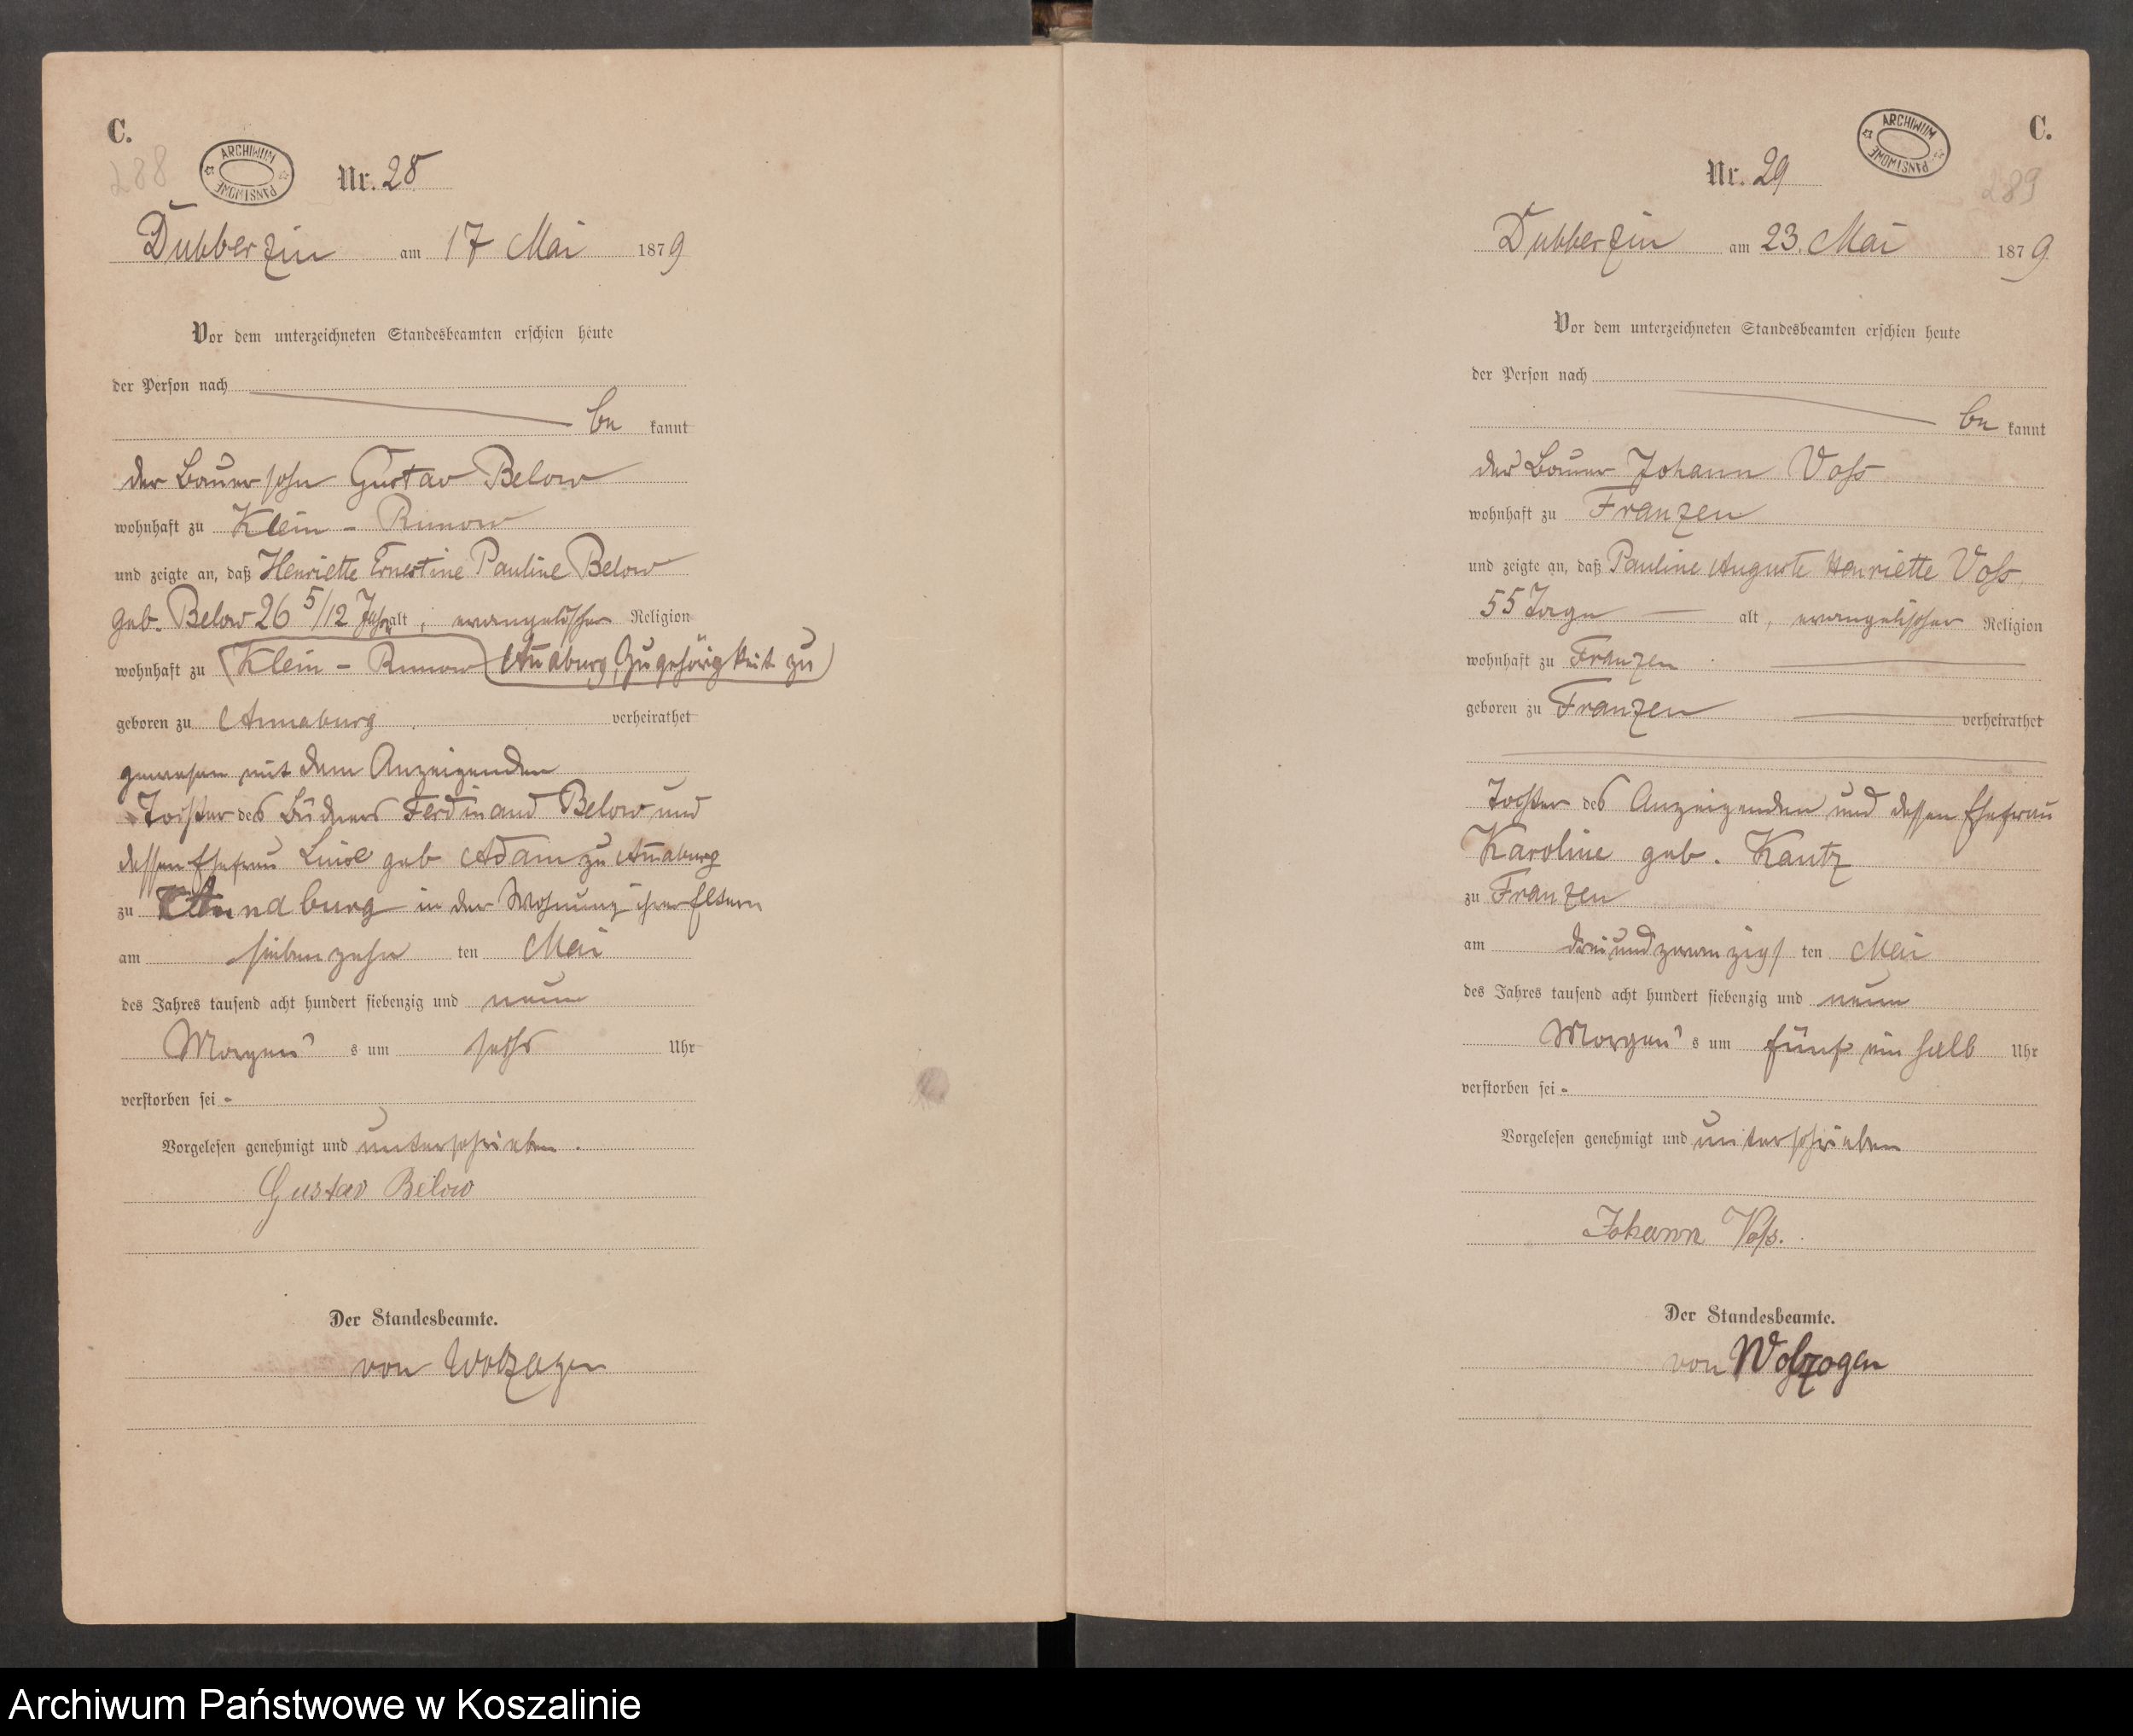 C.
288
ARCHIWUM PAŃSTWOWE
Nr. 28
Dubberzin am 17 Mai 1879
Vor dem unterzeichneten Standesbeamten erschien heute
der Person nach
be kannt
der Bauersohn Gustav Below
wohnhaft zu Klein - Runow
und zeigte an, daß Henriette Ernestine Pauline Below
geb. Below 26 5/12 Jahr alt, evangelischer Religion
wohnhaft zu (Klein - Runow) (Annaburg, Zugehörigkeit zu)
geboren zu Annaburg verheirathet
gewesen mit dem Anzeigenden
Tochter des Büdners Ferdinand Below und
dessen Ehefrau Luise geb Adam zu Annaburg
zu Annaburg in der Wohnung ihrer Eltern
am siebenzehn ten Mai
des Jahres tausend acht hundert siebenzig und neun
Morgen's um sechs Uhr
verstorben sei -
Vorgelesen genehmigt und unterschrieben.
Gustav Below
Der Standesbeamte.
von Wolzogen
C.
289
ARCHIWUM PAŃSTWOWE
Nr. 29
Dubberzin am 23. Mai 1879
Vor dem unterzeichneten Standesbeamten erschien heute
der Person nach
be kannt
der Bauer Johann Voß
wohnhaft zu Franzen
und zeigte an, daß Pauline Auguste Henriette Voß,
55 Tage alt, evangelischer Religion
wohnhaft zu Franzen
geboren zu Franzen verheirathet
Tochter des Anzeigenden und dessen Ehefrau
Karoline geb. Kautz
zu Franzen
am dreiundzwanzigs ten Mai
des Jahres tausend acht hundert siebenzig und neun
Morgen's um fünf ein halb Uhr
verstorben sei -
Vorgelesen genehmigt und unterschrieben
Johann Voß.
Der Standesbeamte.
von Wolzogen
Archiwum Państwowe w Koszalinie